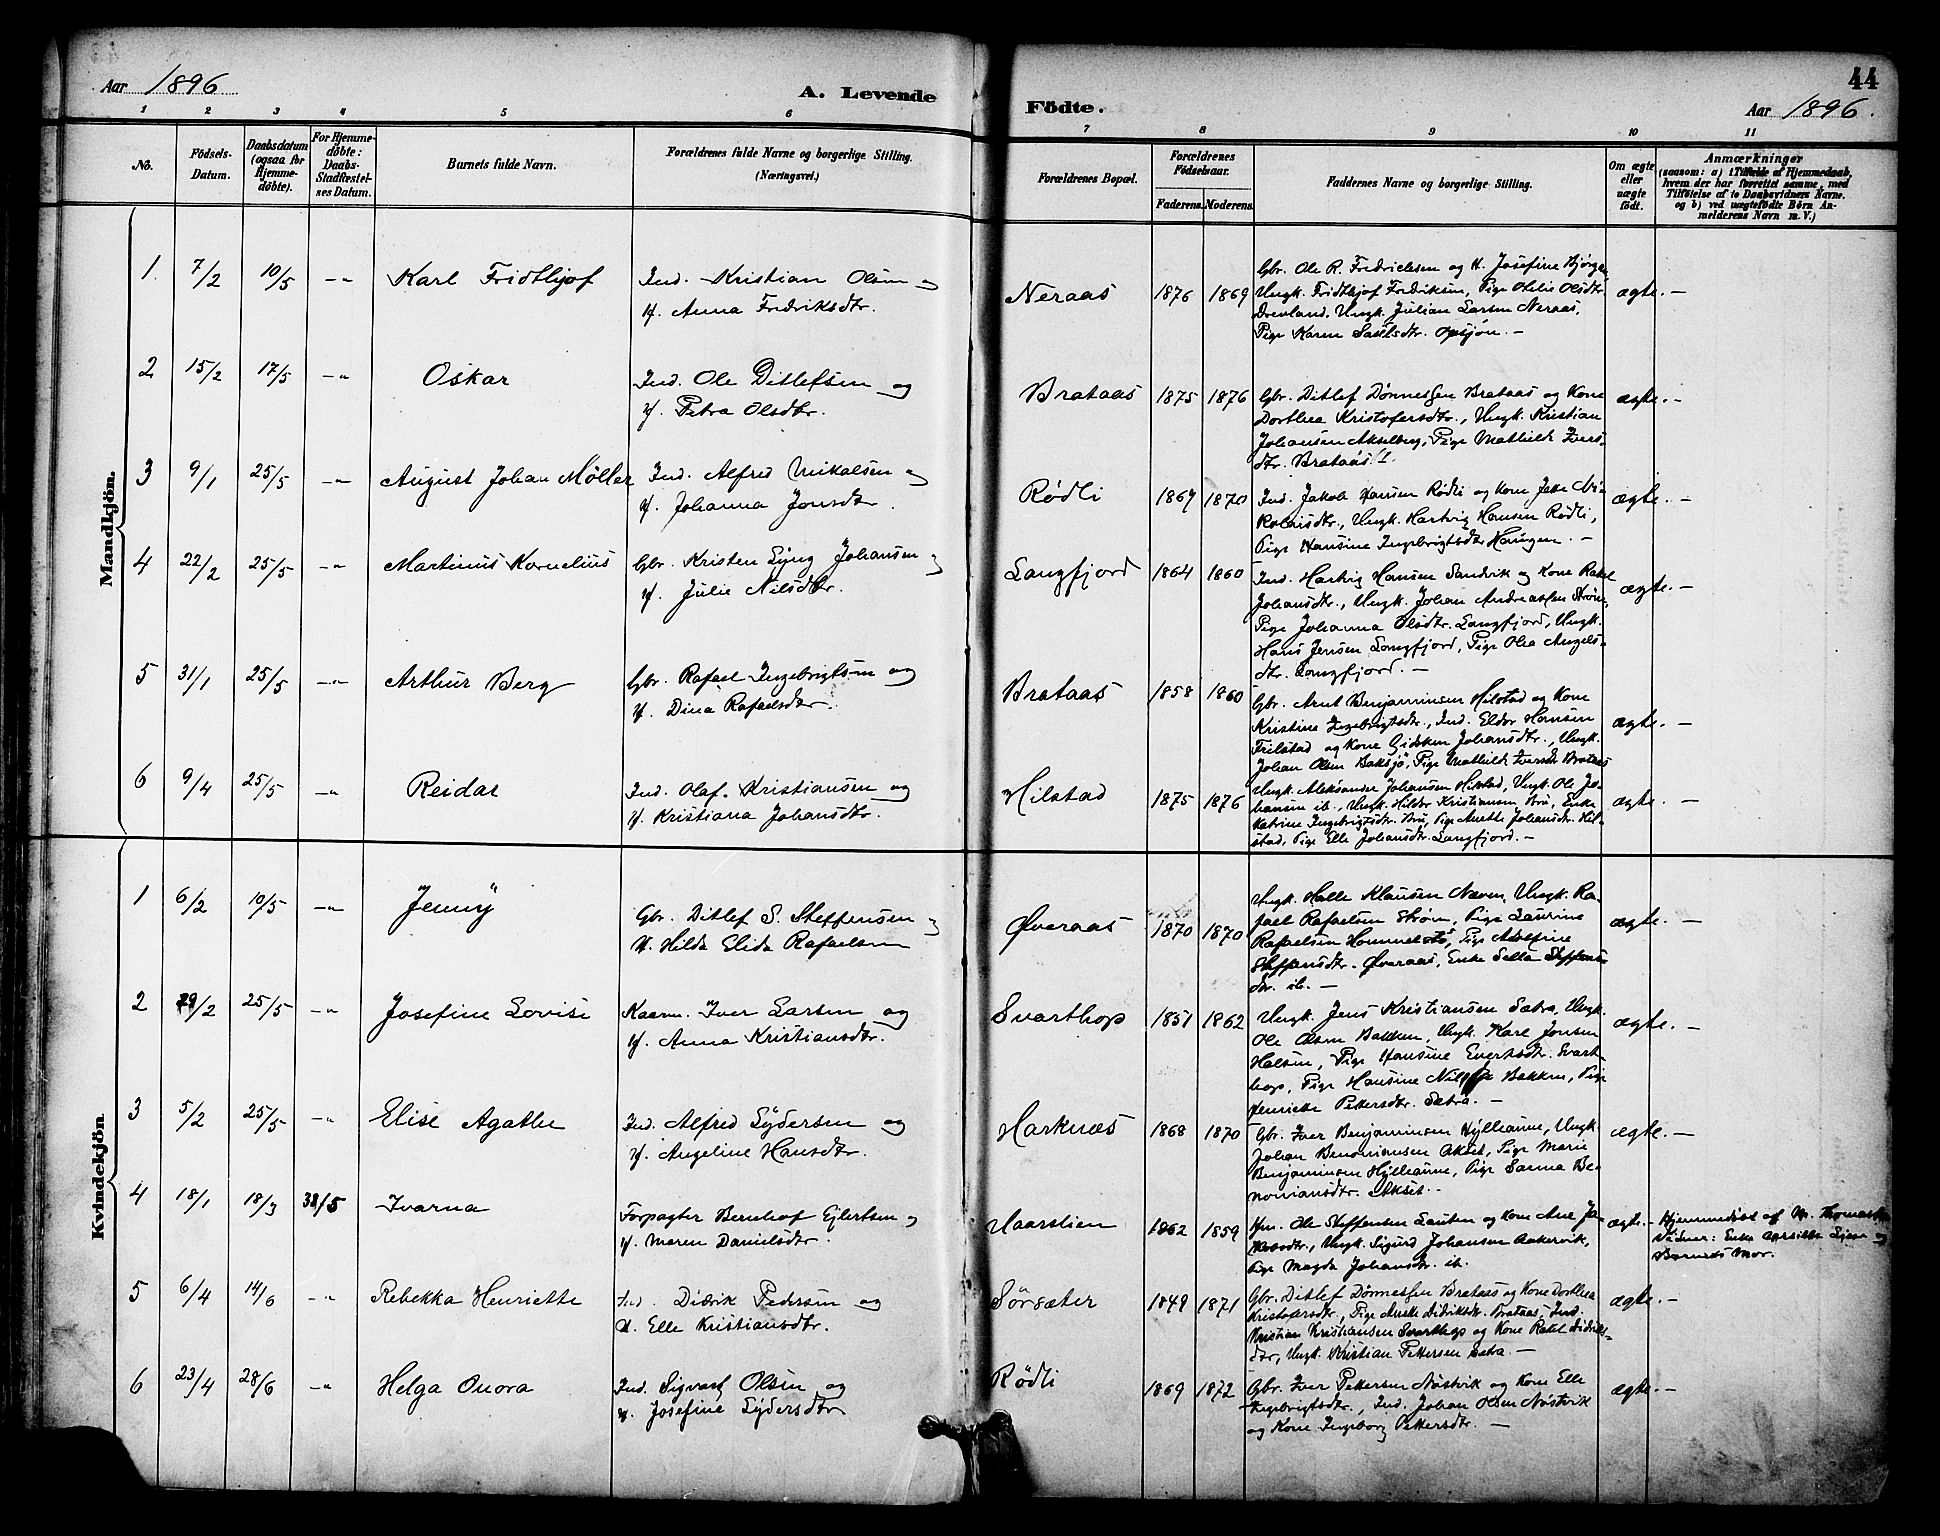 Aar 1896
A. Levende
Födte.
44
Aar 1896.
1 2 3 4 5 6 7 8 9 10 11
No.
Födsels-Datum.
Daabsdatum (ogsaa for Hjemmedöbte).
For Hjemmedöbte: Daabs-Stadfæstelses Datum.
Barnets fulde Navn.
Forældrenes fulde Navne og borgerlige Stilling. (Næringsvei.)
Forældrenes Bopæl.
Forældrenes Födselsaar.
Faderens. Moderens.
Faddernes Navne og borgerlige Stilling.
Om ægte eller uægte födt.
Anmærkninger
(saasom: a) i Tilfælde af Hjemmedaab, hvem der har forrettet samme, med Tilföielse af to Daabsvidners Navne, og b) ved uægtefödte Börn Anmelderens Navn m. V.)
Mandkjön.
1. 7/2 10/5 -"- Karl Fridthjof
Ind. Kristian Olsen og
H. Anna Fredriksdtr.
Neraas 1876 1869
Gbr. Ole R. Fredriksen og H. Josefine Bjørgan
Ungk. Fridthjof Fredriksen, Pige Otilie Olsdtr.
Drevland. Ungk. Julian Larsen Neraas,
Pige Karen Opsjön. -
ægte. -
2 15/2 17/5 -"- Oskar
Ind. Ole Ditlefsen og
H. Petra Olsdtr.
Brataas 1875 1876
Gbr. Ditlef Dønnessen Brataas og Kone
Dorthea Kristofersdtr., Ungk. Kristian
Johansen Akselberg, Pige Mathilde Ivers-
dtr. Brataas.
ægte. -
3 9/1 25/5 -"- August Johan Møller
Ind. Alfred Nikolisen og
H. Johanna Jonsdtr.
Rødli 1867 1870
Ind. Jakob Hansen Rødli og Kone Jette Ni-
kolaisdtr., Ungk. Hartvig Hansen Rødli,
Pige Hansine Ingebrigtsdtr. Haugen. -
ægte. -
4 22/2 25/5 -"- Martinus Kornelius
Gbr. Kristen Lyng Johansen og
H. Julie Nilsdtr.
Langfjord 1864 1860
Ind. Hartvig Hansen Sandvik og Kone Rakel
Johansdtr., Ungk. Johan Andreassen Strøm,
Pige Johanna Olsdtr. Langfjord, Ungk.
Hans Jensen Langfjord, Pige Olea Angels-
dtr. Langfjord. -
ægte. -
5 31/1 25/5 -"- Arthur Berg
Gbr. Rafael Ingebrigtsen og
H. Dina Rafaelsdtr.
Brataas 1858 1860
Gbr. Arnt Benjaminsen Hilstad og Kone
Kristine Ingebrigtsdtr., Ind. Eldor Hansen
Frilstad og Kone Gidsken Johansdtr., Ungk.
Johan Olsen Baksjö, Pige Mathilde Iversdtr. Brataas
ægte. -
6 9/4 25/5 -"- Reidar
Ind. Olaf Kristiansen og
H. Kristiana Johansdtr.
Hilstad 1875 1876
Ungk. Aleksander Johansen Hilstad, Ungk. Ole Jo-
hansen ib., Ungk. Hildor Kristiansen Bru, Enke
Katrine Ingebrigtsdtr. Bru, Pige Anette Johansdtr. Hil-
stad, Pige Elle Johansdtr. Langfjord. -
ægte. -
Kvindekjön
1 6/2 10/5 -"- Jenny
Gbr. Ditlef S. Steffensen og
H. Hilda Elida Rafaelsen
Øveraas 1870 1870
Ungk. Halle Klausen Naven, Ungk. Ra-
fael Rafaelsen Strøm, Pige Laurine
Rafaelsen Hommelstø, Pige Adolfine
Steffensdtr. Øveraas, Enke Sella Steffens-
dtr. ib. -
ægte. -
2 29/2 25/5 -"- Josefine Lovise
Kaarm. Iver Larsen og
H. Anna Kristiansdtr.
Svarthop 1851 1862
Ungk. Jens Kristiansen Sætra, Ungk.
Ole Olsen Bakken, Ungk. Karl Jonsen
Halsen, Pige Hansine Evertsdtr. Svart-
hop, Pige Hansine Bakken, Pige
Henriette Pettersdtr. Sætra. -
ægte. -
3 5/2 25/5 -"- Elise Agathe
Ind. Alfred Sydersen og
H. Angeline Hansdtr.
Harknæs 1868 1870
Gbr. Iver Benjaminsen Hylleaune, Ungk.
Johan Benoniansen Akset, Pige Marie
Benjaminsen Hylleaune, Pige Sanna Be-
noniansdtr. Akset. -
ægte. -
4 18/1 18/3 38/5 Ivarna
Forpagter Bernhof Ejlertsen og
H. Maren Danielsdtr.
Haarstien 1862 1859
Hm. Ole Steffensen Lauten og Kone Ane Ja-
kobsdtr., Ungk. Sigurd Johansen Aakervik,
Pige Magda Johansdtr. ib.
ægte. -
Hjemmedöbt af
Vidner: Enke og
Barnets Mor.
5 6/4 14/6 -"- Rebekka Henriette
Ind. Didrik Pedersen og
H. Elle Kristiansdtr.
Sörsæter 1849 1871
Gbr. Ditlef Dønnessen Brataas og Kone Dorthea
Kristofersdtr., Pige Anette Didriksdtr. Brataas, Ind.
Kristian Kristiansen Svarthop og Kone Rakel Didriks-
dtr., Ungk. Kristian Pettersen Sætra. -
ægte. -
6 23/4 28/6 -"- Helga Onora
Ind. Sigvart Olsen og
H. Josefine Sydersdtr.
Rødli 1869 1872
Gbr. Iver Pettersen Nøstvik og Kone Elle
Ingebrigtsdtr., Ind. Johan Olsen Nøstvik
og Kone Ingeborg Pettersdtr. -
ægte. -